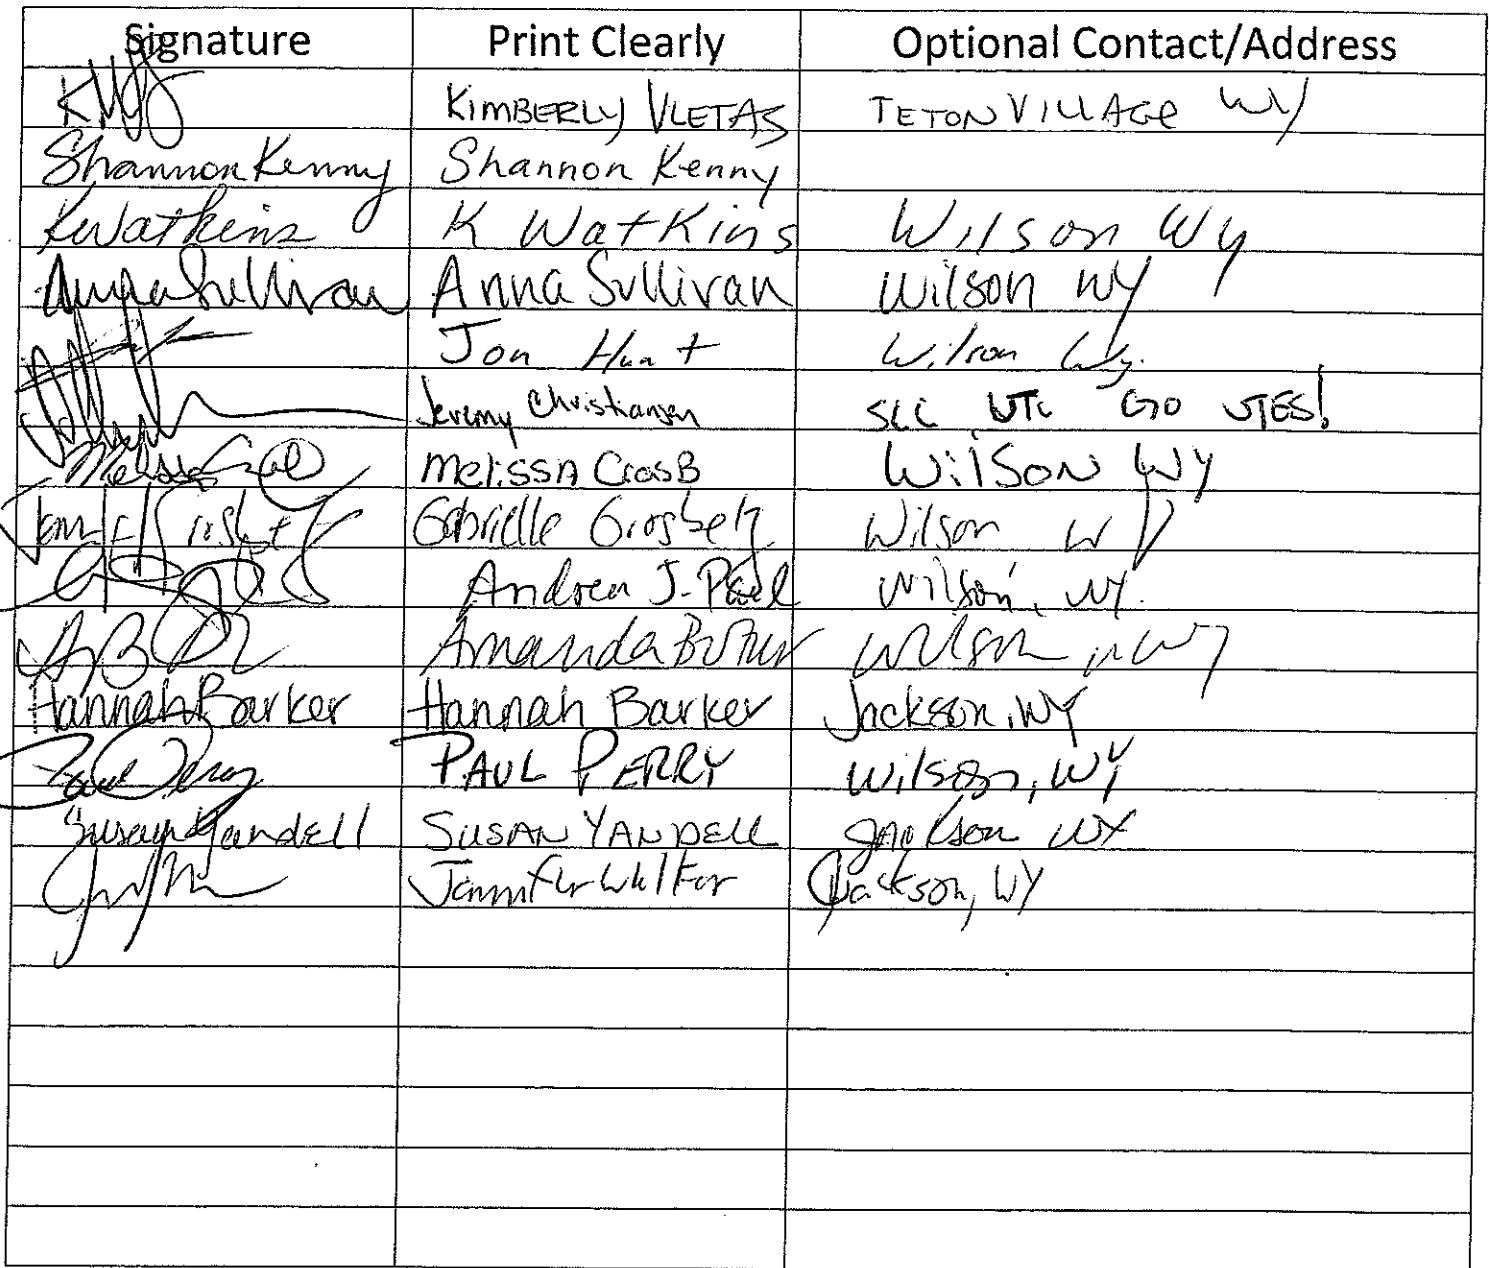 Signature Print Clearly Optional Contact/Address
KIMBERLY VLETAS TETON VILLAGE WY
Shannon Kenny Shannon Kenny
KWatkins K Watkins Wilson Wy
Anna Sullivan Anna Sullivan Wilson WY
Jon Hunt Wilson Wy.
Jeremy Christiansen SLC GO UTES!
Melissa Wilson WY
Gabrielle Wilson WY
Andrea J. Wilson, WY.
Amanda Wilson, WY
Hannah Barker Hannah Barker Jackson, WY
Paul Perry PAUL PERRY Wilson, WY
Susan Yandell SUSAN YANDELL Jackson WY
Jackson, WY